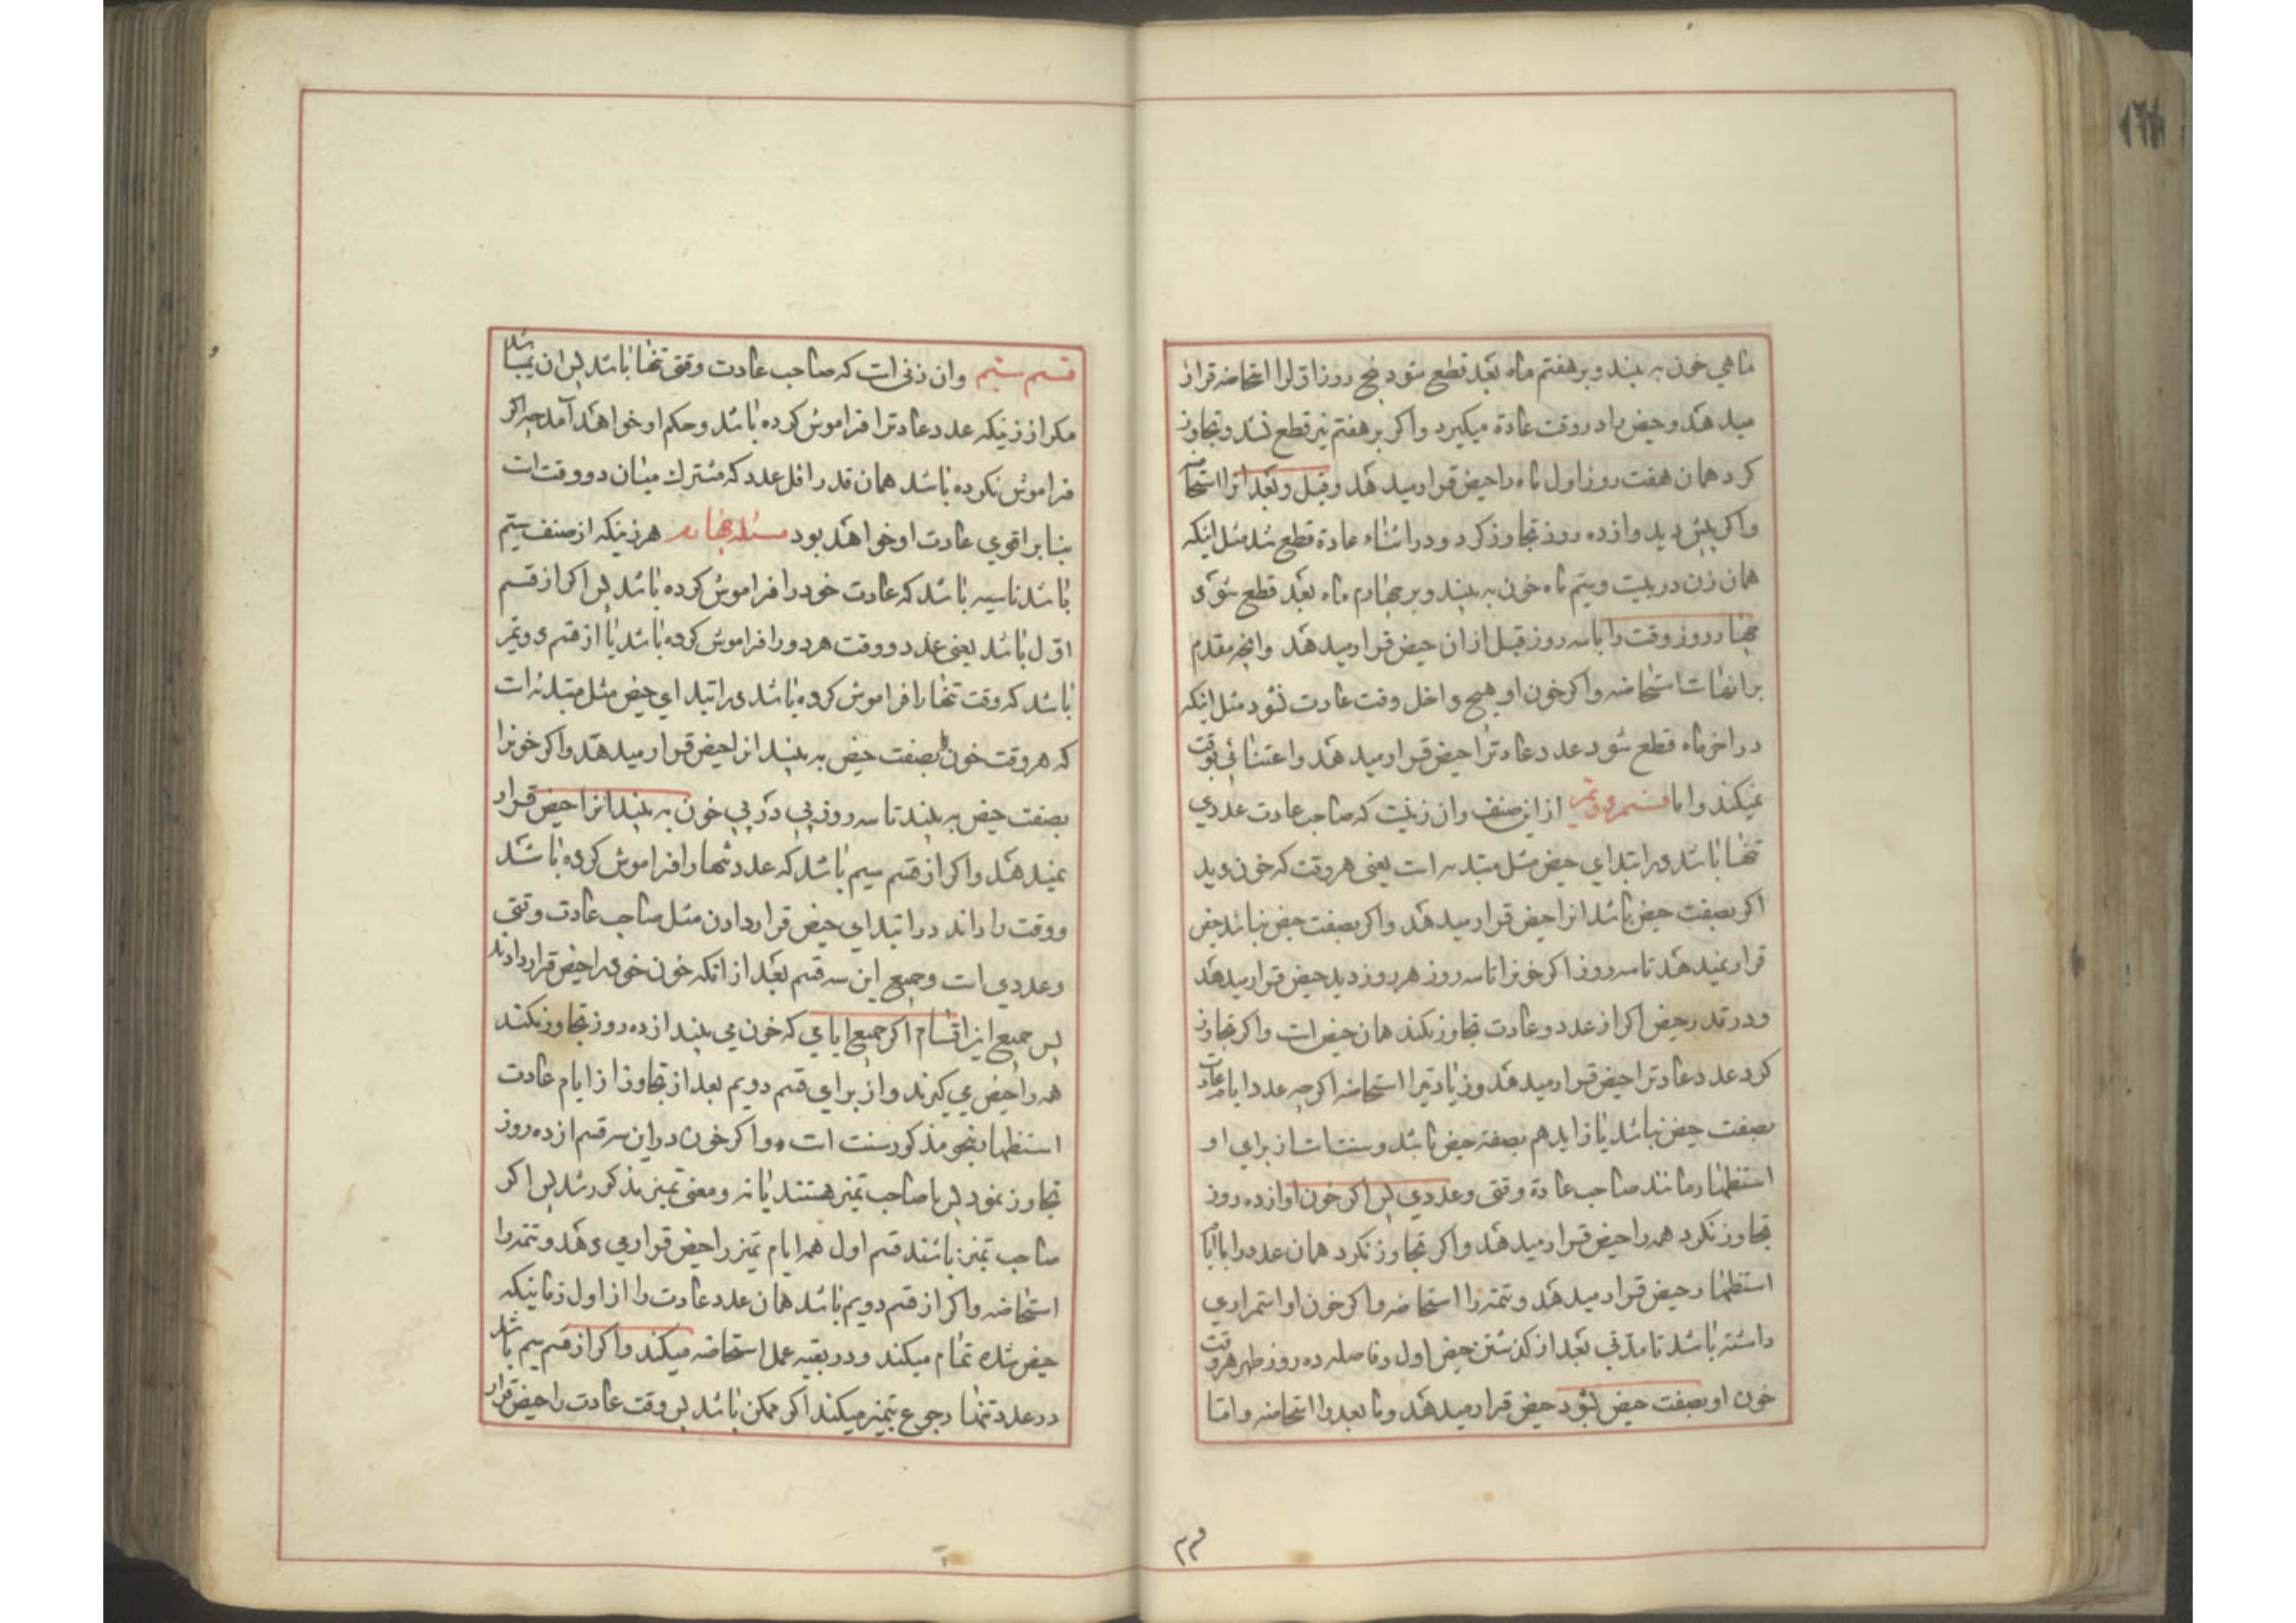 ماهی خون به بیند و بر هفتم ماه بعد قطع شود پنج روز اول را استحاضه قرار
میدهد و حیض را در وقت عادة میگیرد و اکر بر هفتم نیز قطع نشد و تجاوز
کرد همان هفت روز اول ماه را حیض قرار میدهد و قبل و بعد انرا استحاضه
واکر پیش دید و از ده روز تجاوز کرد و در اثناء عادة قطع شد مثل اینکه
همان زن در بیست و سیم ماه خون به بیند و بر چهارم ماه بعد قطع شود
چهار روز وقت را با سه روز قبل از ان حیض قرار میدهد وانچه مقدم
بر انهاست استحاضه واکر خون او هیچ داخل وقت عادت نشود مثل اینکه
در اخر ماه قطع شود عدد عادترا حیض قرار میدهد و اعتنائی بوقت
نمیکند و اما قسم دویم از این صنف وان زنیست که صاحب عادت عددی
تنها باشد در ابتدای حیض مثل مبتدئه است یعنی هر وقت که خون دید
اکر بصفت حیض باشد انرا حیض قرار میدهد واکر بصفت حیض نباشد حیض
قرار نمیدهد تا سه روز اکر خونرا تا سه روز هر روز دید حیض قرار میدهد
و در قدر حیض اکر از عدد و عادت تجاوز نکند همان حیض است واکر تجاوز
کرد عدد عادترا حیض قرار میدهد و زیادتیرا استحاضه اکرچه عدد ایام عادت
بصفت حیض نباشد یا زاید هم بصفة حیض باشد و سنت است از برای او
استظهار مانند صاحب عادة وقتی و عددی پس اکر خون او از ده روز
تجاوز نکرد همه را حیض قرار میدهد واکر تجاوز نکرد همان عدد را با ایام
استظهار حیض قرار میدهد و تتمه را استحاضه واکر خون او استمراری
داشته باشد تا مدتی بعد از کذشتن حیض اول و فاصله ده روز طهر هر وقت
خون او بصفت حیض بشود حیض قرار میدهد و ما بعد را استحاضه و اما
۲۲
قسم سیم وان زنی است که صاحب عادت وقتی تنها باشد پس ان نمیباشد
مکر از زنیکه عدد عادترا فراموش کرده باشد و حکم او خواهد آمد چه اکر
فراموش نکرده باشد همان قدر اقل عدد که مشترک میان دو وقت است
بنا بر اقوی عادت او خواهد بود مسئله چهارم هر زنیکه از صنف سیم
باشد ناسیه باشد که عادت خود را فراموش کرده باشد پس اکر از قسم
اول باشد یعنی عدد و وقت هر دو را فراموش کرده باشد یا از قسم دویم
باشد که وقت تنها را فراموش کرده باشد در ابتدای حیض مثل مبتدئه است
که هر وقت خون بصفت حیض به بیند انرا حیض قرار میدهد واکر خونرا
بصفت حیض به بیند تا سه روز پی در پی خون به بیند انرا حیض قرار
نمیدهد واکر از قسم سیم باشد که عدد تنها را فراموش کرده باشد
و وقت را داند در ابتدای حیض قرار دادن مثل صاحب عادت وقتی
وعددی است و جمیع این سه قسم بعد از انکه خون خود را حیض قرار دادند
پس جمیع این اقسام اکر جمیع ایامی که خون می بیند از ده روز تجاوز نکند
همه را حیض می کیرند و از برای قسم دویم بعد از تجاوز از ایام عادت
استظهار بنحو مذکور سنت است واکر خون در این سه قسم از ده روز
تجاوز نمود پس یا صاحب تمیز هستند یا نه و معنی تمیز مذکور شد پس اکر
صاحب تمیز باشند قسم اول همه ایام تمیز را حیض قرار می دهد و تتمه را
استحاضه واکر از قسم دویم باشد همان عدد عادت را از اول زمانیکه
حیض شده تمام میکند و در بقیه عمل استحاضه میکند واکر از قسم سیم باشد
در عدد تنها رجوع بتمیز میکند اکر ممکن باشد پس وقت عادت را حیض قرار